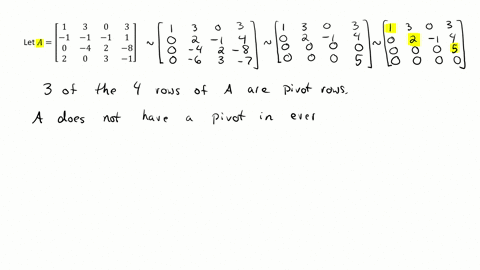 Let A = [1 3 0 3; -1 -1 -1 1; 0 -4 2 -8; 2 0 3 -1] ~ [1 3 0 3; 0 2 -1 4; 0 -4 2 -8; 0 -6 3 -7] ~ [1 3 0 3; 0 2 -1 4; 0 0 0 0; 0 0 0 5] ~ [1 3 0 3; 0 2 -1 4; 0 0 0 5; 0 0 0 0]
3 of the 4 rows of A are pivot rows.
A does not have a pivot in ever